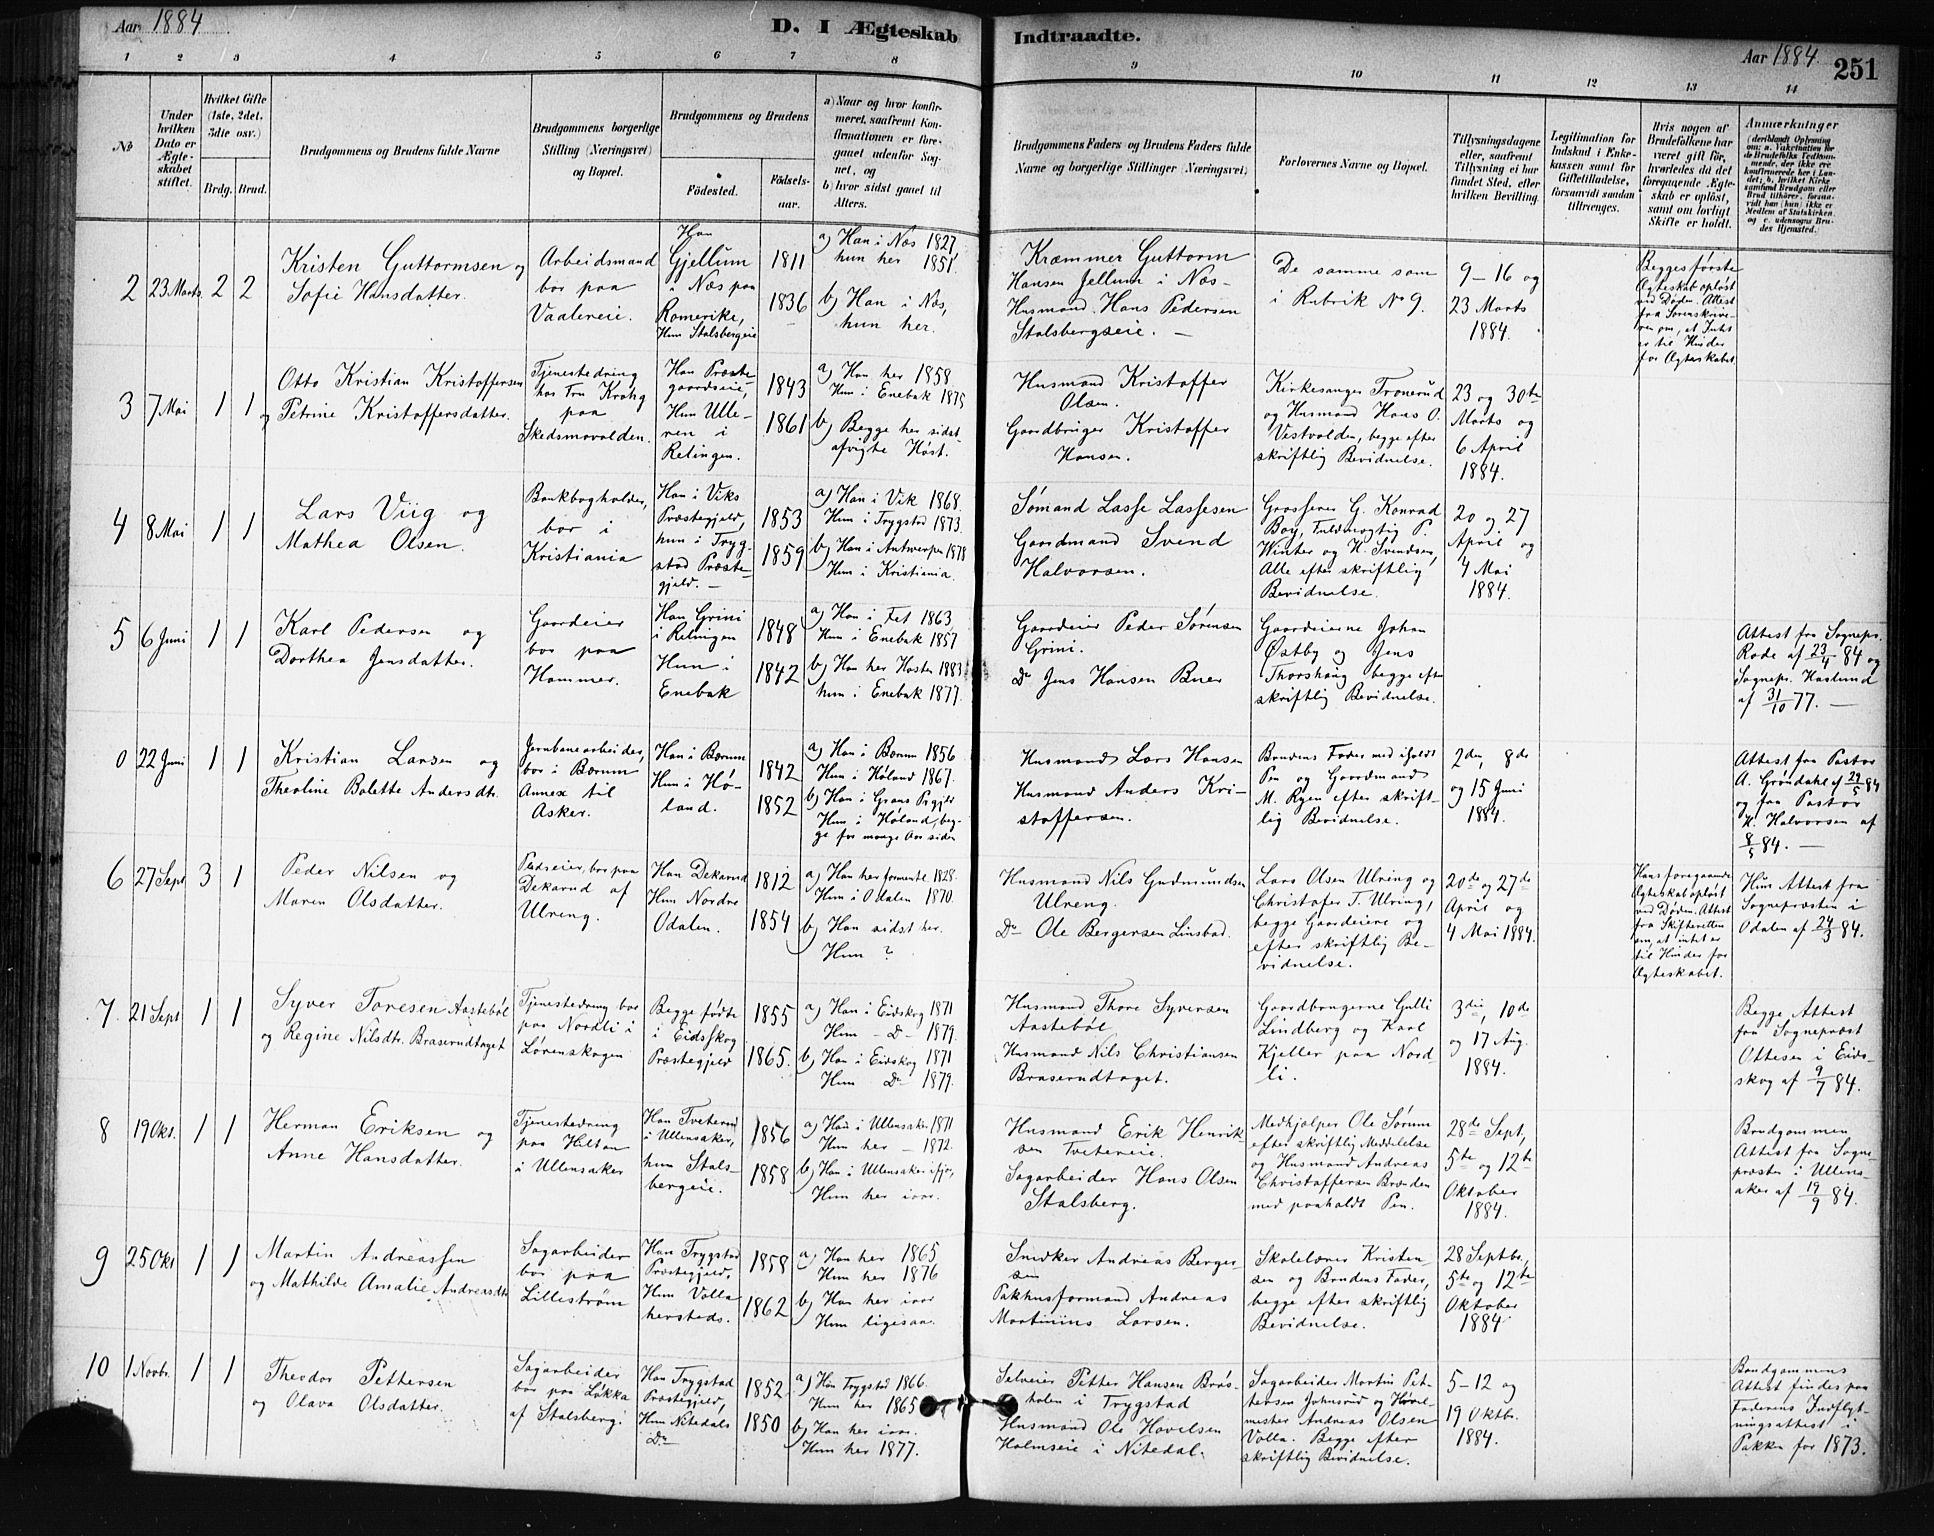 Aar 1884
D. I Ægteskab Indtraadte.
Aar 1884
251
1 2 3 4 5 6 7 8 9 10 11 12 13 14
No
Under hvilken Dato er Ægteskabet stiftet.
Hvilket Gifte (1ste, 2det, 3die osv.)
Brdg. Brud.
Brudgommens og Brudens fulde Navne
Brudgommens borgerlige Stilling (Næringsvei) og Bopæl.
Brudgommens og Brudens
Fødested.
Fødselsaar.
a) Naar og hvor konfirmeret, saafremt Konfirmationen er foregaaet udenfor Sognet, og
b) hvor sidst gaaet til Alters.
Brudgommens Faders og Brudens Faders fulde Navne og borgerlige Stillinger (Næringsvei)
Forlovernes Navne og Bopæl.
Tillysningsdagene eller, saafremt Tillysning ei har fundet Sted, efter hvilken Bevilling.
Legitimation for Indskud i Enkekassen samt for Giftetilladelse, forsaavidt saadan tiltrænges.
Hvis nogen af Brudefolkene har været gift før, hvorledes da det foregaaende Ægteskab er opløst, samt om lovligt Skifte er holdt.
Anmærkninger
2
23 Marts
2 2
Kristen Guttormsen og
Sofie Hansdatter.
Arbeidsmand
bor paa
Vaalereie.
Han
Gjellum
i Næs paa
Romerike,
Hun Stalsbergeie
1811
1836
a) Han i Næs 1827.
hun her 1851.
b) Han i Næs,
hun her.
Kræmmer Guttorm
Hansen Jellum i Næs -
Husmand Hans Pedersen
Stalsbergseie. -
De samme som
i Rubrik No 9.
9 - 16 og
23 Marts
1884.
Begges første
Ægteskab opløst
ved Døden. Attest
fra Sorenskrive-
ren om, at Intet
er til Hinder
for Ægteskabet.
3
7 Mai
1 1
Otto Kristian Kristoffersen
og Petrine Kristoffersdatter.
Tjenestedreng
hos Fru Krohg
paa
Skedsmovolden.
Han Præste-
gaardseie,
Hun Ulle-
ren i
Relingen.
1843
1861
a) Han her 1858.
Hun i Enebak 1875
b) Begge her sidst-
afvigte Høst.
Husmand Kristoffer
Olsen.
Gaardbruger Kristoffer
Hansen.
Kirkesanger Tronerud
og Husmand Hans O.
Vestvolden, begge efter
skriftlig Bevidnelse.
23 og 30te
Marts og
6 April
1884.
4
8 Mai
1 1
Lars Viig og
Mathea Olsen.
Bankbogholder,
bor i
Kristiania
Han i Viks
Præstegjeld,
hun i Tryg-
stad Præste-
gjeld. -
1853
1859
a) Han i Vik 1868.
Hun i Trygstad 1873.
b) Han i Antwerpen 1878
Hun i Kristiania.
Sømand Lasse Lassesen
Gaardmand Svend
Halvorsen.
Grosserer G. Konrad
Boy, Fuldmægtig P.
Winter og H. Svendsen,
Alle efter skriftlig
Bevidnelse.
20 og 27
April og
4 Mai
1884.
5
6 Juni
1 1
Karl Pedersen og
Dorthea Jensdatter.
Gaardeier
bor paa
Hammer.
Han Grini
i Relingen
Hun i
Enebak
1848
1842
a) Han i Fet 1863.
Hun i Enebak 1857
b) Han her Høsten 1883
hun i Enebak 1877.
Gaardeier Peder Sørensen
Grini.
Do Jens Hansen Buer
Gaardeierne Johan
Østby og Jens
Thorshaug begge efter
skriftlig Bevidnelse.
Attest fra Sognepr.
Rode af 23/4 84 og
Sognepr. Haslund
af 31/10 77. -
0
22 Juni
1 1
Kristian Larsen og
Theoline Bolette Andersdtr.
Jernbanearbeider,
bor i Bærum
Annex til
Asker.
Han i Bærum
Hun i Hø-
land.
1842
1852
a) Han i Bærum 1856
Hun i Høland 1867.
b) Han i Grans Prgjeld
Hun i Høland, beg-
ge for mange Aar siden
Husmand Lars Hansen
Husmand Anders Kri-
stoffersen.
Brudens Fader med iholdt
Pen og Gaardmand
M. Ryen efter skrift-
lig Bevidnelse.
2den, 8de
og 15 Juni
1884.
Attest fra Pastor
A. Grøndahl af 29/5 84
og fra Pastor
H. Halvorsen af
8/5 84. -
6
27 Sept
3 1
Peder Nilsen og
Maren Olsdatter.
Pladseier, bor paa
Dekarud af
Ulreng.
Han Dekarud
Hun Nordre
Odalen.
1812
1854
a) Han her formente 1828.
Hun i Odalen 1870.
b) Han sidst her.
Hun ?
Husmand Nils Gudmundsen
Ulreng.
Do Ole Bergersen Linsbad.
Lars Olsen Ulring og
Christofer T. Ulring,
begge Gaardeiere og
efter skriftlig Be-
vidnelse.
20de og 27de
April og
4 Mai 1884.
Hans foregaaende
Ægteskab opløst
ved Døden. Attest
fra Skifteretten
om, at intet er
til Hinder for
Ægteskabet.
Huns Attest fra
Sognepræsten i
Odalen af 24/3 84.
7.
21 Sept
1 1
Syver Toresen Aastebøl
og Regine Nilsdtr. Braserudtaget
Tjenestedreng bor
paa Nordli i
Lørenskogen
Begge fødte
i Eidsskog
Præstegjeld
1855
1865.
a) Han i Eidskog 1871
Hun - Do 1879.
b) Han i Eidskog 1871
Hun Do 1879.
Husmand Thore Syversen
Aastebøl
Husmand Nils Christiansen
Braserudtaget.
Gaardbrugerne Gulli
Lindberg og Karl
Kjeller paa Nord-
li.
3die, 10de
og 17 Aug.
1884.
Begge Attest
fra Sognepræst
Ottesen i Eids-
skog af 9/7 84.
8
19 Okt.
1 1
Herman Eriksen og
Anne Hansdatter.
Tjenestedreng
paa Hilton
i Ullensaker
Han Tveterud
i Ullensaker,
hun Stals-
bergeie.
1856
1858
a) Han i Ullensaker 1871
Hun her - 1872.
b) Han i Ullensaker ifjor,
Hun her iaar.
Husmand Erik Henrik-
sen Tvetereie.
Sagarbeider Hans Olsen
Stalsberg.
Medhjælper Ole Sørum
efter skriftlig Meddelelse
og Husmand Andreas
Christoffersen Branden
med paaholdt Pen.
28de Sept,
5te og 12te
Oktober
1884.
Brudgommen
Attest fra Sogne-
præsten i Ullens-
aker af 19/9 84.
9
25 Okt
1 1
Martin Andreassen
og Mathilde Amalie Andreasdtr
Sagarbeider
bor paa
Lillestrøm
Han Trygstad
Præstegjeld,
Hun Volla
hersteds.
1858
1862
a) Han her 1865
Hun her 1876
b) Han her iaar
Hun ligesaa.
Snedker Andreas Berger-
sen
Pakhusformand Andreas
Martinius Larsen.
Skolelærer Kristen-
sen og Brudens Fader,
begge efter skriftlig
Bevidnelse.
28 Septbr,
5te og 12te
Oktober
1884
10
1 Novbr.
1 1
Theodor Pettersen
og Olava Olsdatter.
Sagarbeider
bor paa Løkka
af Stalsberg.
Han Trygstad
Præstegjeld,
Hun Nitedals
Do
1852
1850
a) Han Trygstad 1866.
Hun her 1865
b) Han her iaar.
Hun her 1877.
Selveier Petter Hansen Brøs-
holen i Trygstad
Husmand Ole Hovelsen
Holmseie i Nitedal.
Sagarbeider Martin Pet-
tersen Johnsrud og
mester Andreas Olsen
Volla. Begge efter
skriftlig Bevidnelse.
5 - 12 og
19 Oktbr.
1884.
Brudgommens
Attest findes paa
Faderens Indflyt-
ningsattest i
Pakke for 1873.